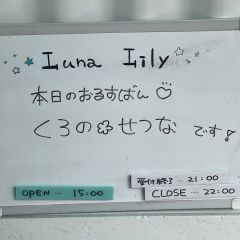 Luna Lily
本日のおるすばん
くろの せつな です!
受付終了…21:00
OPEN…15:00
CLOSE…22:00